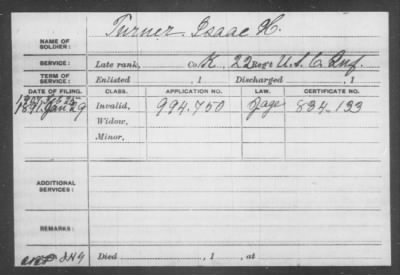 NAME OF SOLDIER: Turner, Isaac H.
SERVICE: Late rank, Co. K, 22 Reg't U.S.C. Inf.
TERM OF SERVICE: Enlisted , 1 Discharged , 1
DATE OF FILING. CLASS. APPLICATION NO. LAW. CERTIFICATE NO.
1907
1891, Jan 29 Invalid, 994.750 834.133
Widow,
Minor,
ADDITIONAL SERVICES:
REMARKS:
Died , 1 , at